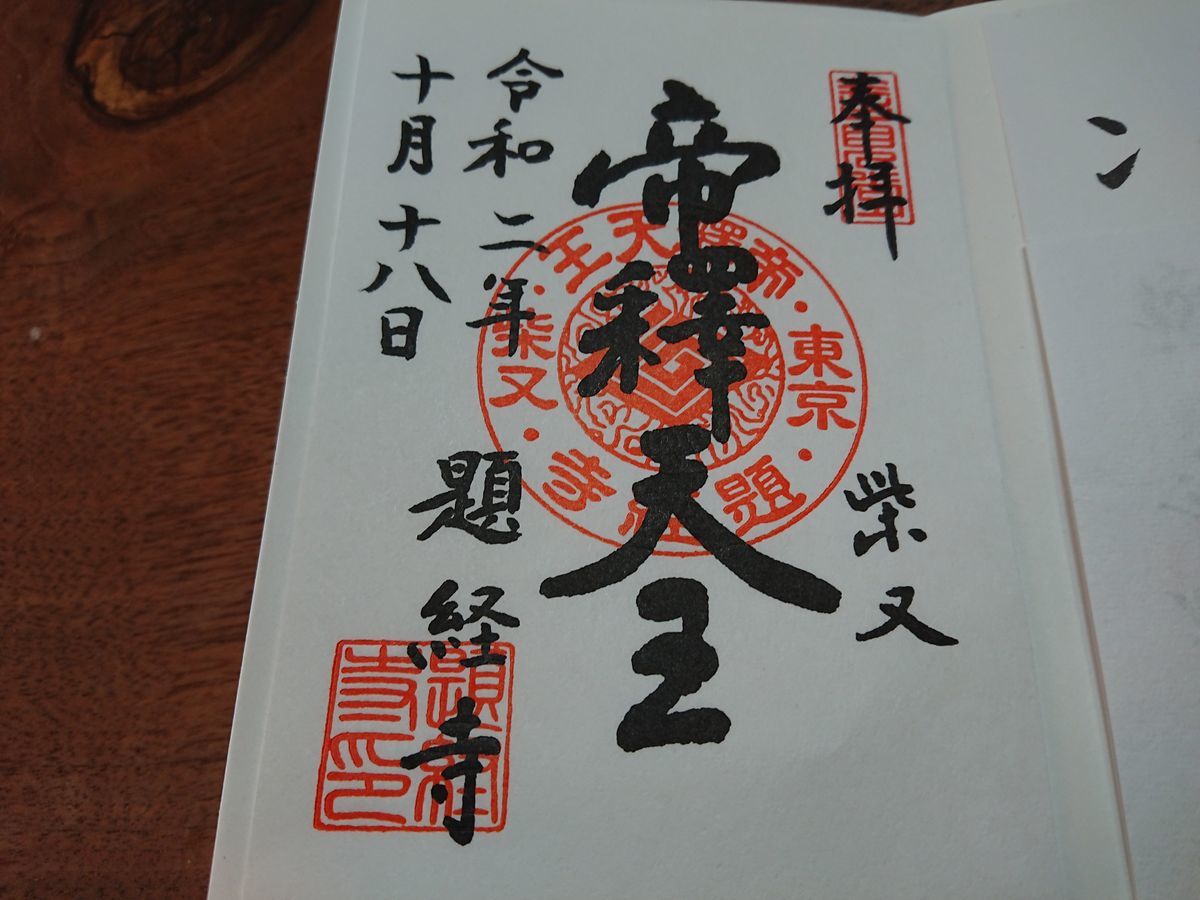 奉拝
柴又
帝釋天王
令和二年
十月十八日
題経寺
東京
題経寺
柴又
帝釋天王
題経寺印